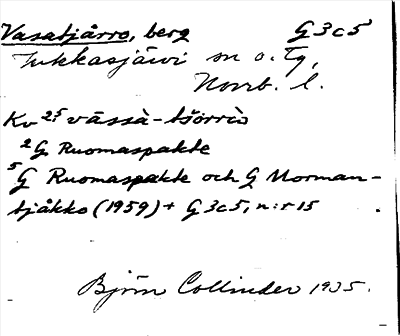 Vasatjårro, berg G 3 c 5
Jukkasjärvi sn o. tg,
Norrb. l.
Kv 2,5 vāssà-tšǒrrò
2 G Ruomaspakte
5 G Ruomaspakte och G Norman-
tjåkko (1959) + G 3c5, n:r 15
Björn Collinder 1935.